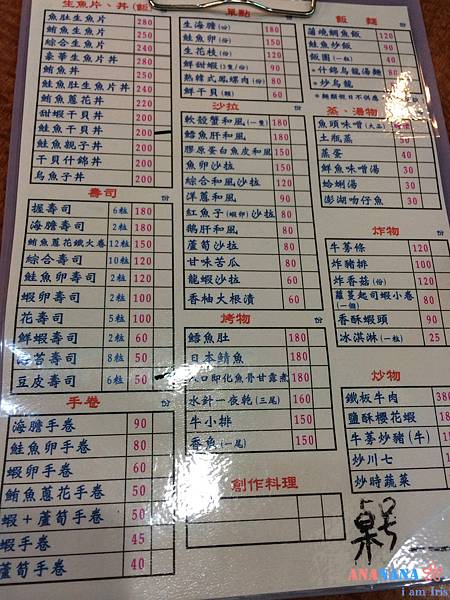 生魚片、丼(飯)
魚肚生魚片 280
鮪魚生魚片 250
綜合生魚片 240
豪華生魚片丼 280
鮪魚丼 250
鮭魚肚生魚片丼 240
鮪魚蔥花丼 220
甜蝦干貝丼 200
鮭魚干貝丼 200
鮭魚親子丼 200
干貝什錦丼 200
烏魚子丼 200
壽司 份
握壽司 6粒 180
海膽壽司 2粒 180
鮪魚蔥花鐵火卷 12粒 150
綜合壽司 10粒 120
鮭魚卵壽司 2粒 120
蝦卵壽司 2粒 100
花壽司 5粒 100
鮮蝦壽司 2粒 60
海苔壽司 8粒 50
豆皮壽司 6粒 50
手卷 份
海膽手卷 90
鮭魚卵手卷 80
蝦卵手卷 60
鮪魚蔥花手卷 50
蝦+蘆筍手卷 50
蝦手卷 45
蘆筍手卷 40
單點
生海膽(份)
鮭魚卵(份)
生花枝(份)
鮮甜蝦(3隻) 90
熱韓式鳳螺肉(份) 80
鮮干貝(顆) 60
沙拉 份
軟殼蟹和風(一隻) 180
鱈魚肝和風 180
膠原蛋白魚皮和風 150
魚卵沙拉 150
綜合和風沙拉 120
洋蔥和風 90
紅魚子(蝦卵)沙拉 80
鵝肝和風 80
蘆筍沙拉 60
甘味苦瓜 60
龍蝦沙拉 60
香柚大根漬 60
烤物 份
鱈魚肚 180
日本鯖魚 180
入口即化魚骨甘露煮 180
水針一夜乾(三尾) 160
牛小排 150
香魚(一尾) 150
創作料理
飯 麵 份
蒲燒鯛魚飯 120
鮭魚炒飯 90
飯團(一粒) 40
*什錦烏龍湯麵 80
*炒烏龍 80
蒸、湯物 份
魚頭味噌(大品)
土瓶蒸 50
蒸蛋 40
鮮魚味噌湯 30
蛤蜊湯 30
澎湖吻仔魚 30
炸物 份
牛蒡條 120
炸豬排 100
炸香菇(份) 120
蘿蔓起司蝦小卷(一個) 80
香酥蝦頭 90
冰淇淋(一粒) 25
炒物
鐵板牛肉 380
鹽酥櫻花蝦 180
牛蒡炒豬(牛)
炒川七
炒時蔬菜
桌號
ANANANA
i am Iris